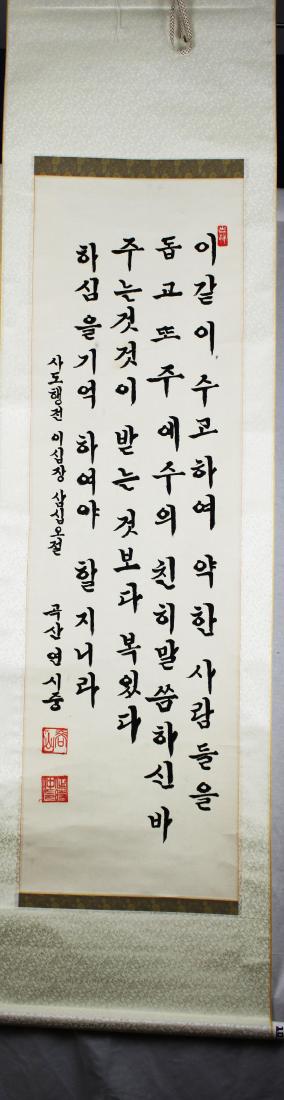 이같이 수고하여 약한 사람들을
돕고 또 주 예수의 친히 말씀하신 바
주는것것이 받는 것보다 복있다
하심을 기억 하여야 할지니라
사도행전 이십장 삼십오절 곡산 연시중